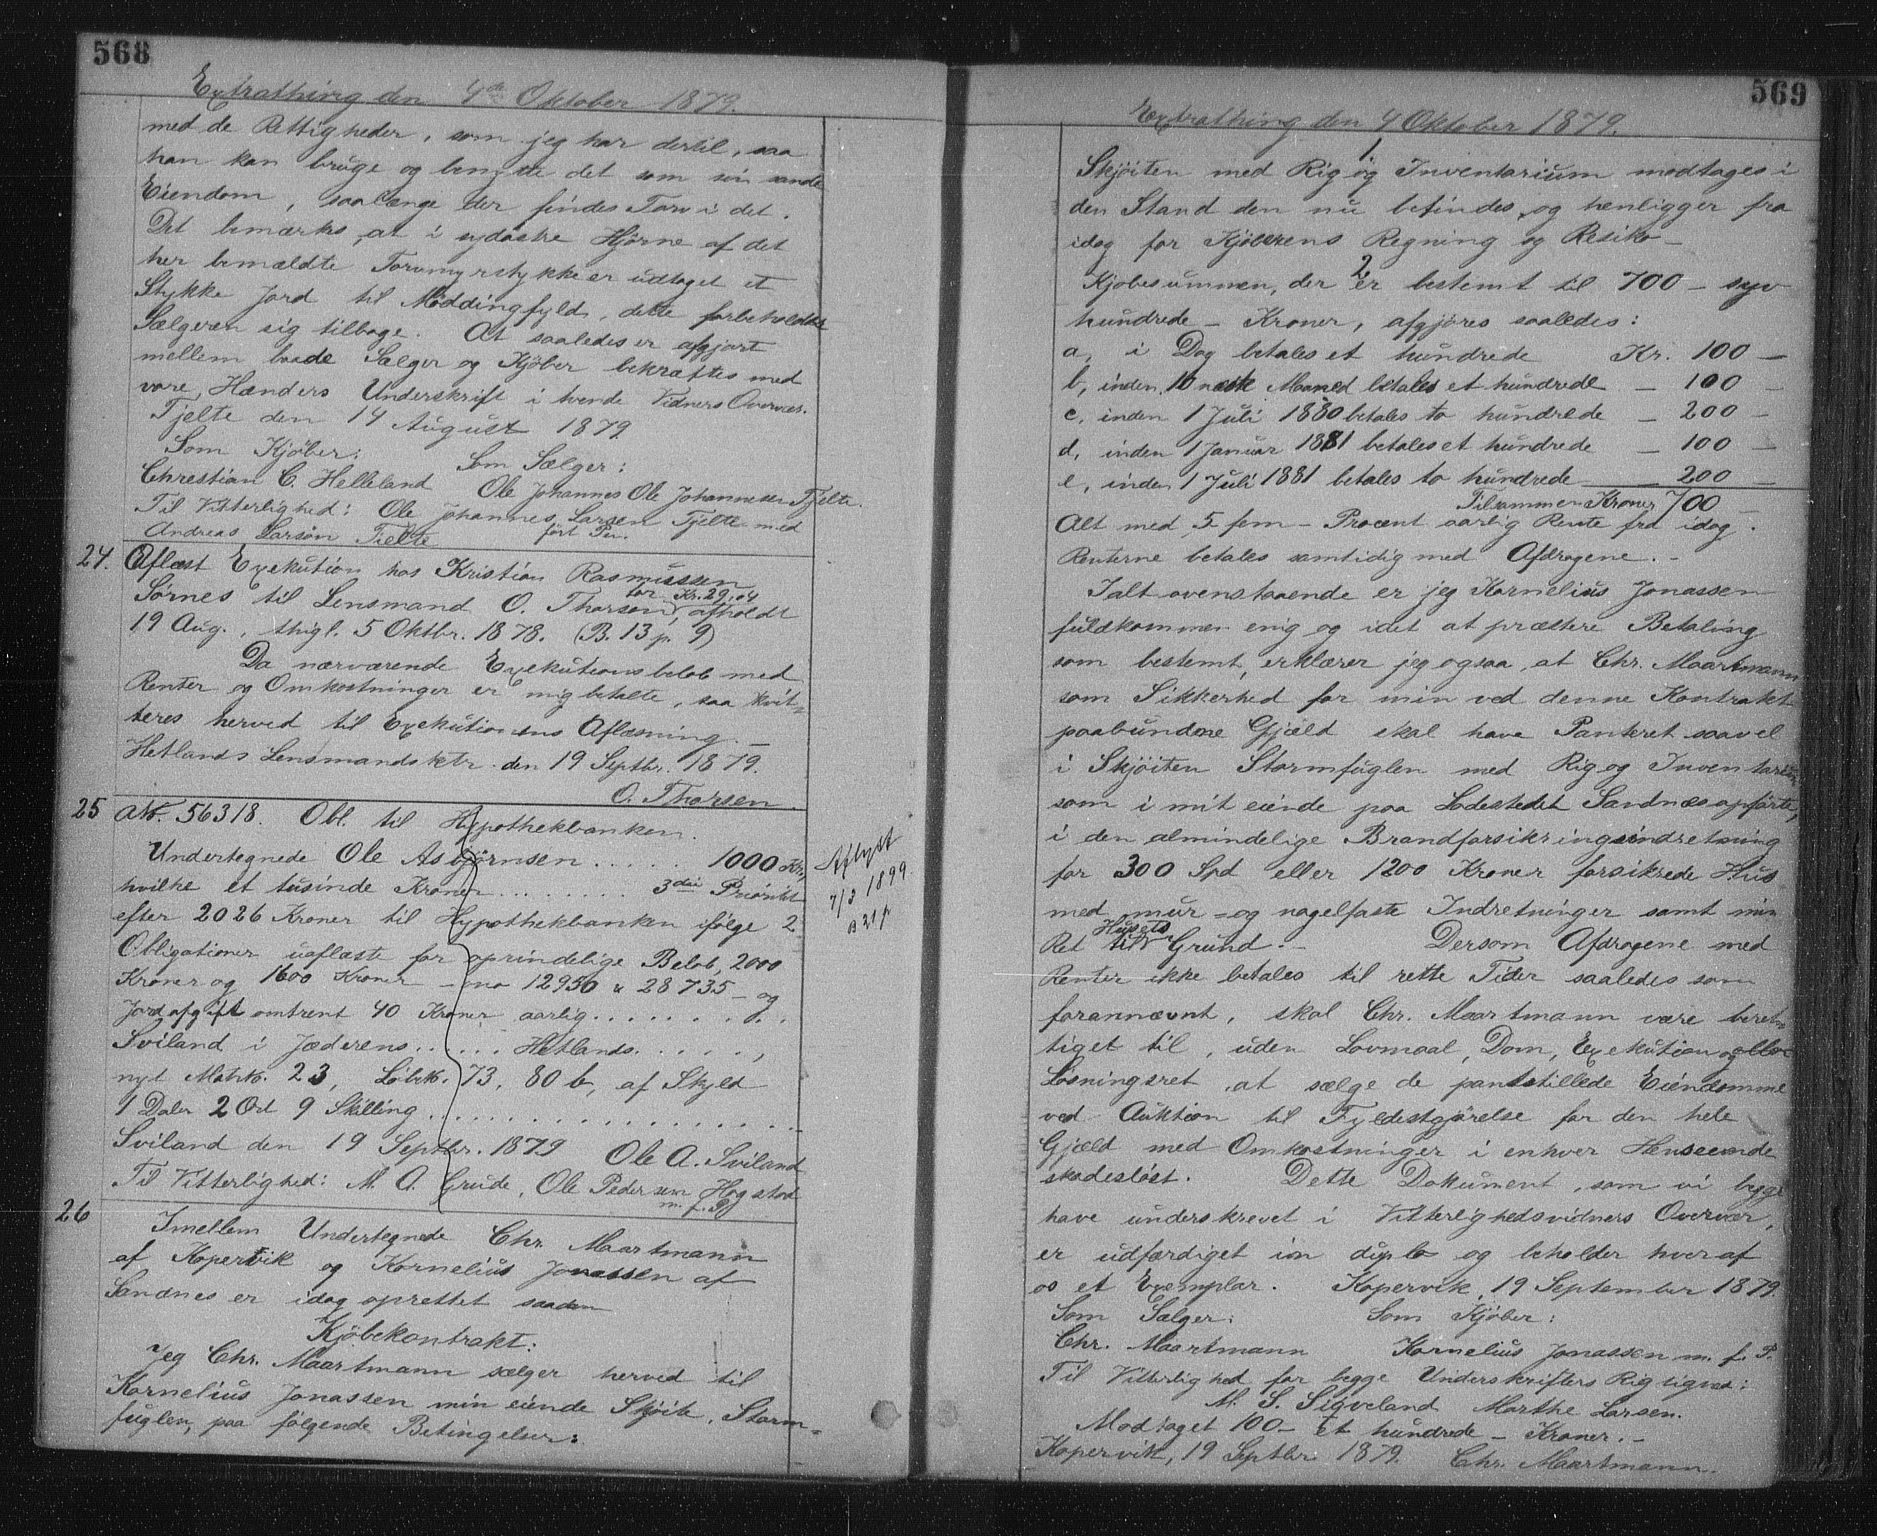 568
Extrathing den 4de Oktober 1879.
med de Rettigheder, som jeg har dertil, saa
han kan bruge og benytte det som sin sande
Eiendom, saalænge der findes Torv i det.
Det bemærkes, at i sydøstre Hjørne af det
her bemældte Torvmyrstykke er udtaget et
Stykke Jord til Møddingfyld, dette forbeholdt
Sælgeren sig tilbage. At saaledes er afgjort
mellem baade Sælger og Kjøber bekræftes med
vore Hænders Underskrift i tvende Vidners Overvær.
Tjelte den 14 August 1879
Som Kjøber: Som Sælger:
Chrestian C. Helleland Ole Johannes Ole Johannessen Tjelte.
Til Vitterlighed: Ole Johannes Larsen Tjelte med
Andreas Larsøn Tjelte ført Pen.
24. Aflæst Exekution hos Kristian Rasmussen
Sørnes til Lensmand O. Thorsen for Kr. 29,04, afholdt
19 Aug., thigl. 5 Oktbr. 1878. (B. 13 p. 9)
Da nærværende Exekutionsbeløb med
Renter og Omkostninger er mig betalte, saa kvit-
teres herved til Exekutionens Aflæsning. —
Hetlands Lensmandsktr. den 19 Septbr. 1879.
O. Thorsen.
25 No. 56318. Obl. til Hypothekbanken.
Undertegnede Ole Asbjørnsen ..... 1000 Kr.,
hvilke et tusinde Kroner ........ 3die Prioritet
efter 2026 Kroner til Hypothekbanken ifølge 2
Obligationer uaflæste for oprindelige Beløb, 2000
Kroner og 1600 Kroner — no 12956 & 28735 — og
Jordafgift omtrent 40 Kroner aarlig .......
Sviland i Jæderens ..... Hetlands .....,
nyt Matrk. 23, Løbek. 73, 80 b, af Skyld
1 Daler 2 Ort 9 Skilling ..................
Sviland den 19 Septbr. 1879 Ole A. Sviland
Til Vitterlighed: M. A. Grude, Ole Pedersen Hogstad
m. f. P.
Aflyst
7/3 1899
B 21 p
26 Imellem Undertegnede Chr. Maartmann
af Kopervik og Kornelius Jonassen af
Sandnes er idag oprettet saadan
Kjøbekontrakt:
Jeg Chr. Maartmann sælger herved til
Kornelius Jonassen min eiende Skjøite, Storm-
fuglen, paa følgende Betingelser:
569
Extrathing den 4 Oktober 1879.
1.
Skjøiten med Rig og Inventarium modtages i
den Stand den nu befindes og henligger fra
idag for Kjøberens Regning og Resiko —
2.
Kjøbesummen, der er bestemt til 700 — syv
hundrede — Kroner, afgjøres saaledes:
a, i Dag betales et hundrede Kr. 100 —
b, inden 10 næste Maaned betales et hundrede — 100 —
c, inden 1 Juli 1880 betales to hundrede — 200 —
d, inden 1 Januar 1881 betales et hundrede — 100 —
e, inden 1 Juli 1881 betales to hundrede — 200 —
Tilsammen Kroner 700 —
Alt med 5 fem — Procent aarlig Rente fra idag.
Renterne betales samtidig med Afdragene. —
I alt ovenstaaende er jeg Kornelius Jonassen
fuldkommen enig og idet at præstere Betaling
som bestemt, erklærer jeg ogsaa, at Chr. Maartmann
som Sikkerhed for min ved denne Kontrakt
paabundne Gjæld skal have Panteret saavel
i Skjøiten Stormfuglen med Rig og Inventarium
som i mit eiende paa Ladestedet Sandnes opførte,
i den almindelige Brandforsikringsindretning
for 300 Spd eller 1200 Kroner forsikrede Hus
med mur- og nagelfaste Indretninger samt min
Ret til Husets Grund. — Dersom Afdragene med
Renter ikke betales til rette Tider saaledes som
forannævnt, skal Chr. Maartmann være beret-
tiget til, uden Lovmaal, Dom, Exekution og eller
Løsningsret at sælge de pantstillede Eiendomme
ved Auktion til Fyldestgjørelse for den hele
Gjæld med Omkostninger i enhver Henseende
skadesløst. Dette Dokument, som vi begge
have underskrevet i Vitterlighedsvidners Overvær,
er udfærdiget in duplo og beholder hver af
os et Exemplar. Kopervik, 19 September 1879
Som Sælger: Som Kjøber:
Chr. Maartmann Kornelius Jonassen m. f. P.
Til Vitterlighed for begge Underskrifters Rigtighed:
M. S. Sigveland Marthe Larsen.
Modtaget 100 — Et hundrede — Kroner. —
Kopervik, 19 Septbr 1879. Chr. Maartmann.